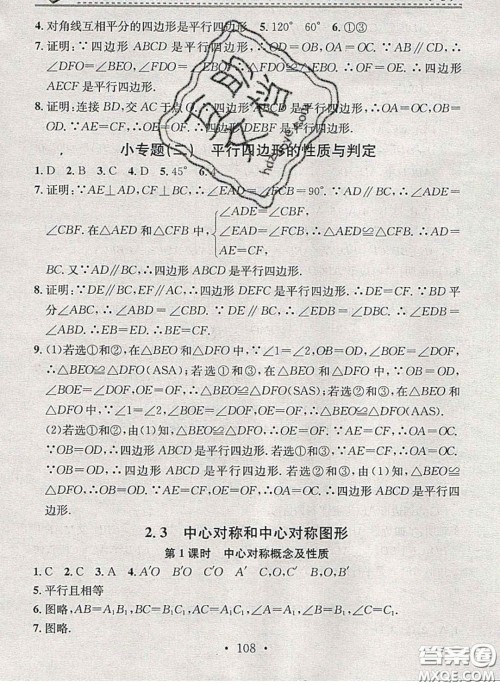 4. 对角线互相平分的四边形是平行四边形 5. 120° 60° 6. ①③
7. 证明:∵四边形 ABCD 是平行四边形,∴OD=OB,DC∥AB,∴
∠DFO=∠BEO,∴△DFO≌△BEO,∴OF=OE,∴四边形
AECF 是平行四边形.
8. 证明:连接 BD,交 AC 于点 O,∵四边形 ABCD 是平行四边形,∴OA=OC,OB=
OD.∵AE=CF,∴OE=OF.∴四边形 DEBF 是平行四边形.
小专题(二) 平行四边形的性质与判定
1. D 2. B 3. C 4. D 5. 45° 6. 4
7. 证明:∵AE⊥AD,CF⊥BC,∴∠EAD=∠FCB=90°.∵AD∥BC,∴∠ADE=
∠CBF.在△AED 和△CFB 中,
∠ADE=∠CBF,
∠EAD=∠FCB,
AE=CF,
∴△AED≌△CFB,∴AD=
BC.又∵AD∥BC,∴四边形 ABCD 是平行四边形.
8. 证明:∵DE∥BC,EF∥AC,∴四边形 DEFC 是平行四边形.∴DE=CF.∵BD 平
分∠ABC,∴∠DBE=∠DBC.∵DE∥BC,∴∠DBC=∠BDE=∠DBE.∴DE=
BE.∴BE=CF.
9. (1)若选①和②,在△BEO 和△DFO 中,∵∠1=∠2,OB=OD,∠BOE=∠DOF,
∴△BEO≌△DFO(ASA);若选①和③,在△BEO 和△DFO 中,∵OB=OD,
∠BOE=∠DOF,OE=OF,∴△BEO≌△DFO(SAS);若选②和③,在△BEO 和
△DFO 中,∵∠1=∠2,∠BOE=∠DOF,OE=OF,∴△BEO≌△DFO(AAS).
(2)若选①和②,由(1)知,△BEO≌△DFO,∴OE=OF.∵AE=CF,∴OA=OC.
∵OB=OD,∴四边形 ABCD 是平行四边形.若选①和③,由(1)知,△BEO≌
△DFO,∵AE=CF,OE=OF,∴OA=OC.∵OB=OD,∴四边形 ABCD 是平行
四边形.若选②和③,由(1)知,△BEO≌△DFO,∴OB=OD.∵AE=CF,OE=
OF,∴OA=OC.∴四边形 ABCD 是平行四边形.
2.3 中心对称和中心对称图形
第 1 课时 中心对称概念及性质
1. C 2. C 3. A 4. A′O B′O C′O A,O,A′ B,O,B′ C,O,C′
5. 平行且相等
6. 图略,AB=A₁B₁,BC=B₁C₁,CD=C₁D₁,AD=A₁D₁.
7. 图略.
· 108 ·
互助文档
hdzuoye.com
答案圈
MXQE.COM